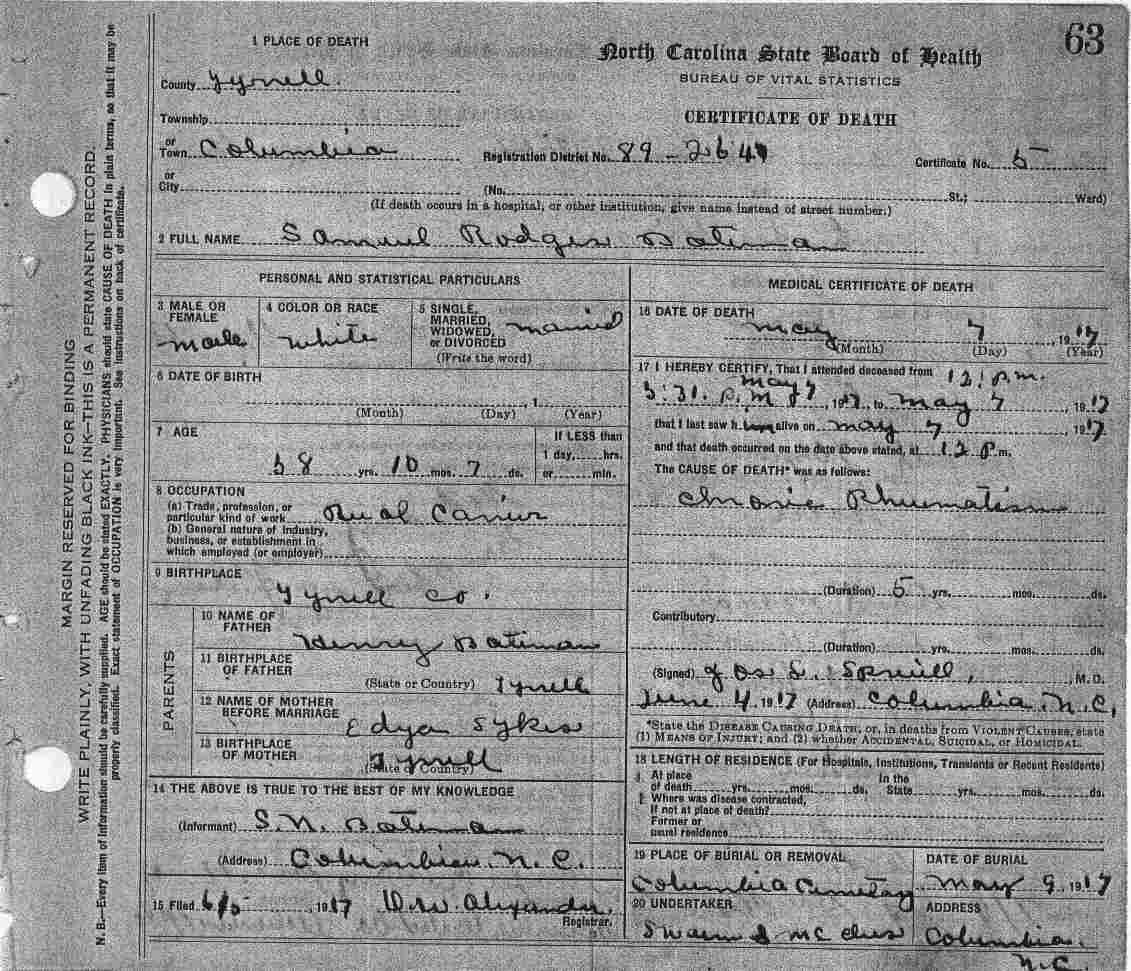 63
MARGIN RESERVED FOR BINDING
WRITE PLAINLY, WITH UNFADING BLACK INK—THIS IS A PERMANENT RECORD.
N. B.—Every item of information should be carefully supplied. AGE should be stated EXACTLY. PHYSICIANS should state CAUSE OF DEATH in plain terms, so that it may be
properly classified. Exact statement of OCCUPATION is very important. See instructions on back of certificate.
North Carolina State Board of Health
BUREAU OF VITAL STATISTICS
CERTIFICATE OF DEATH
1 PLACE OF DEATH
County Tyrrell
Township
or Town Columbia Registration District No. 89-2641 Certificate No. 5
or City (No. St.; Ward)
(If death occurs in a hospital, or other institution, give name instead of street number.)
2 FULL NAME Samuel Rodgers Bateman
PERSONAL AND STATISTICAL PARTICULARS
3 MALE OR FEMALE Male
4 COLOR OR RACE White
5 SINGLE, MARRIED, WIDOWED, or DIVORCED married
(Write the word)
6 DATE OF BIRTH
, 1
(Month) (Day) (Year)
7 AGE
58 yrs. 10 mos. 7 ds.
If LESS than
1 day, hrs.
or min.
8 OCCUPATION
(a) Trade, profession, or
particular kind of work Rural Carrier
(b) General nature of industry,
business, or establishment in
which employed (or employer)
9 BIRTHPLACE
Tyrrell Co.
PARENTS
10 NAME OF FATHER Henry Bateman
11 BIRTHPLACE OF FATHER
(State or Country) Tyrrell
12 NAME OF MOTHER BEFORE MARRIAGE Sykes
13 BIRTHPLACE OF MOTHER
(State or Country) Tyrrell
14 THE ABOVE IS TRUE TO THE BEST OF MY KNOWLEDGE
(Informant) S. N. Bateman
(Address) Columbia N.C.
15 Filed 6/5 1917 Alexander,
Registrar.
MEDICAL CERTIFICATE OF DEATH
16 DATE OF DEATH
May 7 , 1917
(Month) (Day) (Year)
17 I HEREBY CERTIFY, That I attended deceased from 12 P.m.
May 7, 1917, to May 7, 1917
that I last saw h him alive on May 7 1917
and that death occurred on the date above stated, at 12 P. m.
The CAUSE OF DEATH* was as follows:
Chronic Rhumatism
(Duration) 5 yrs. mos. ds.
Contributory
(Duration) yrs. mos. ds.
(Signed) Jos. L. Spruill, M.D.
June 4, 1917 (Address) Columbia, N.C.
*State the DISEASE CAUSING DEATH, or, in deaths from VIOLENT CAUSES, state
(1) MEANS OF INJURY; and (2) whether ACCIDENTAL, SUICIDAL, or HOMICIDAL.
18 LENGTH OF RESIDENCE (For Hospitals, Institutions, Transients or Recent Residents)
At place of death yrs. mos. ds. In the State yrs. mos. ds.
Where was disease contracted,
If not at place of death?
Former or
usual residence
19 PLACE OF BURIAL OR REMOVAL
Columbia Cemetery
DATE OF BURIAL
May 9, 1917
20 UNDERTAKER
Swain &
ADDRESS
Columbia.
N.C.